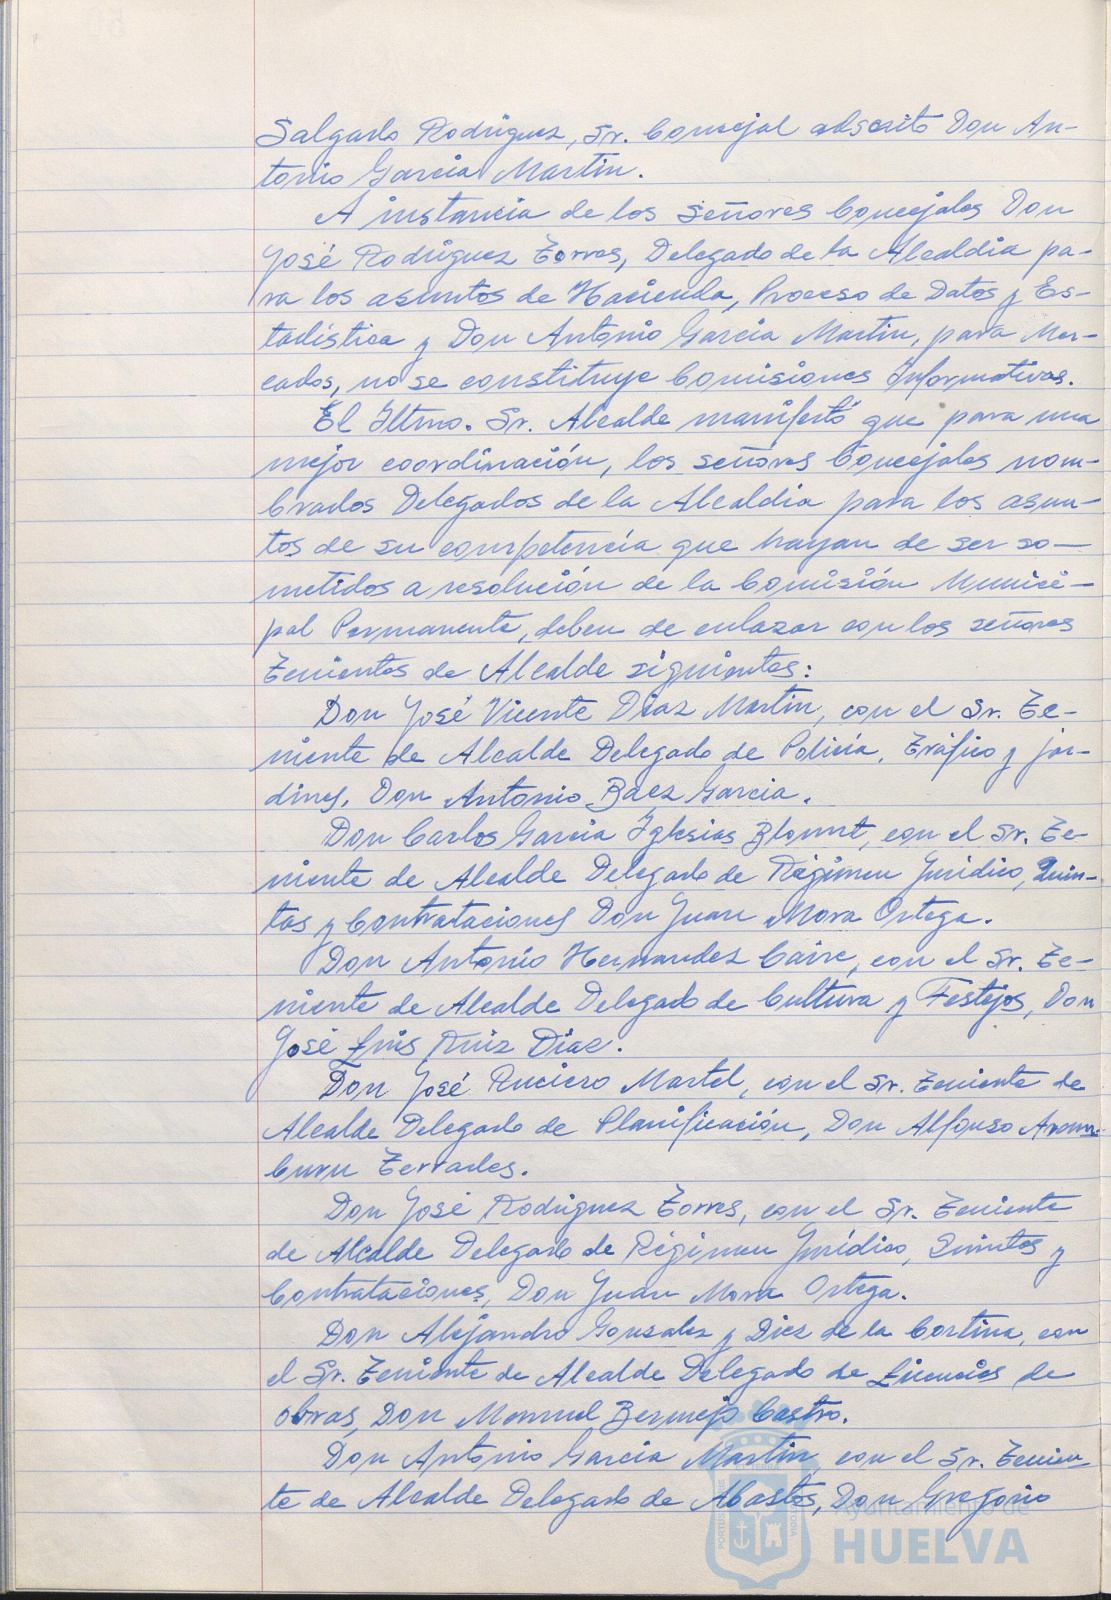 Salgado Rodríguez, Sr. Concejal adscrito Don An-
tonio García Martín.
A instancia de los señores Concejales Don
José Rodríguez Torres, Delegado de la Alcaldía pa-
ra los asuntos de Hacienda, Proceso de Datos y Es-
tadística y Don Antonio García Martín, para Mer-
cados, no se constituye Comisiones Informativas.
El Iltmo. Sr. Alcalde manifestó que para una
mejor coordinación, los señores Concejales nom-
brados Delegados de la Alcaldía para los asun-
tos de su competencia que hayan de ser so-
metidos a resolución de la Comisión Munici-
pal Permanente, deben de enlazar con los señores
Tenientes de Alcalde siguientes:
Don José Vicente Díaz Martín, con el Sr. Te-
niente de Alcalde Delegado de Policía, Tráfico y jar-
dines, Don Antonio Baez García.
Don Carlos García Iglesias Blount, con el Sr. Te-
niente de Alcalde Delegado de Régimen Jurídico, Quin-
tas y Contrataciones Don Juan Mora Ortega.
Don Antonio Hernandez Caire, con el Sr. Te-
niente de Alcalde Delegado de Cultura y Festejos, Don
José Luis Ruiz Díaz.
Don José Ruciero Martel, con el Sr. Teniente de
Alcalde Delegado de Planificación, Don Alfonso Aram-
buru Terrades.
Don José Rodríguez Torres, con el Sr. Teniente
de Alcalde Delegado de Régimen Jurídico, Quintas y
Contrataciones, Don Juan Mora Ortega.
Don Alejandro Gonzalez y Diez de la Cortina, con
el Sr. Teniente de Alcalde Delegado de Licencias de
obras, Don Manuel Bermejo Castro.
Don Antonio García Martín, con el Sr. Tenien
te de Alcalde Delegado de Abastos, Don Gregorio
Ayuntamiento de
HUELVA